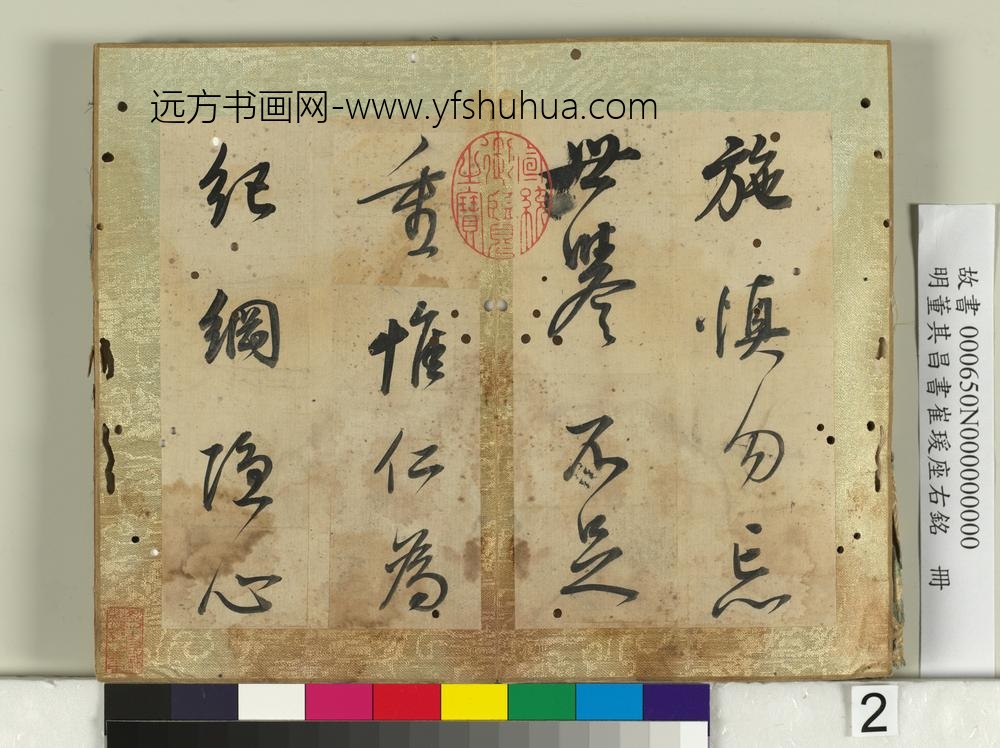 远方书画网-www.yfshuhua.com
施慎勿忘
世譽不足
重惟仁為
紀綱隱心
宣統
御覽
之寶
故書 000650N000000000
明董其昌書崔瑗座右銘 冊
2